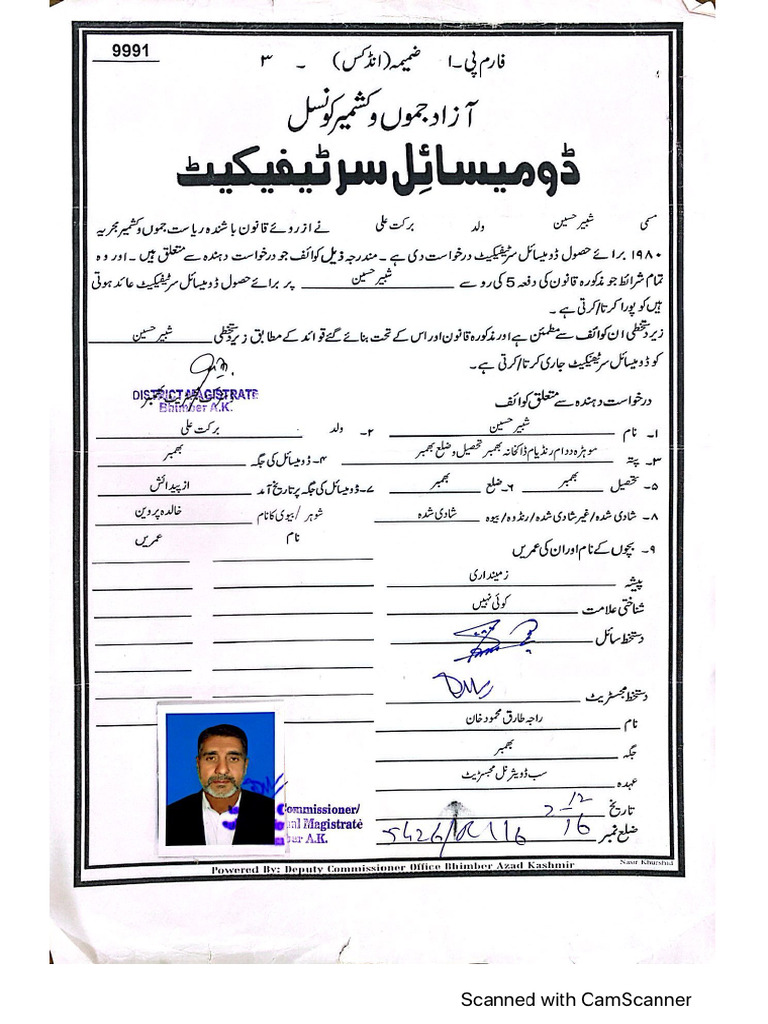 9991
فارم پی۔ا ضمیمہ (انڈکس) ۔ ۳
آزاد جموں و کشمیر کونسل
ڈومیسائل سرٹیفیکیٹ
مسمی شبیر حسین ولد برکت علی نے از روئے قانون باشندہ ریاست جموں و کشمیر مجریہ
۱۹۸۰ برائے حصول ڈومیسائل سرٹیفکیٹ درخواست دی ہے۔ مندرجہ ذیل کوائف جو درخواست دہندہ سے متعلق ہیں۔ اور وہ
تمام شرائط جو مذکورہ قانون کی دفعہ 5 کی رو سے شبیر حسین پر برائے حصول ڈومیسائل سرٹیفکیٹ عائد ہوتی
ہیں کو پورا کرتا/کرتی ہے۔
زیر دستخطی ان کوائف سے مطمئن ہے اور مذکورہ قانون اور اس کے تحت بنائے گئے قوائد کے مطابق زیر دستخطی شبیر حسین
کو ڈومیسائل سرٹیفکیٹ جاری کرتا/کرتی ہے۔
DISTRICT MAGISTRATE
Bhimber A.K.
درخواست دہندہ سے متعلق کوائف
۱۔ نام شبیر حسین ۲۔ ولد برکت علی
۳۔ پتہ موہڑہ ددام رنڈیام ڈاکخانہ بھمبر تحصیل و ضلع بھمبر ۴۔ ڈومیسائل کی جگہ بھمبر
۵۔ تحصیل بھمبر ۶۔ ضلع بھمبر ۷۔ ڈومیسائل کی جگہ پر تاریخ آمد از پیدائش
۸۔ شادی شدہ/غیر شادی شدہ/رنڈوہ/بیوہ شادی شدہ شوہر/بیوی کا نام خالدہ پروین
۹۔ بچوں کے نام اور ان کی عمریں نام عمریں
پیشہ زمینداری
شناختی علامت کوئی نہیں
دستخط سائل
دستخط مجسٹریٹ
نام راجہ طارق محمود خان
جگہ بھمبر
عہدہ سب ڈویژنل مجسٹریٹ
تاریخ
ضلع نمبر
Commissioner/
Magistrate
A.K.
Powered By: Deputy Commissioner Office Bhimber Azad Kashmir
Nasir Khurshid
Scanned with CamScanner